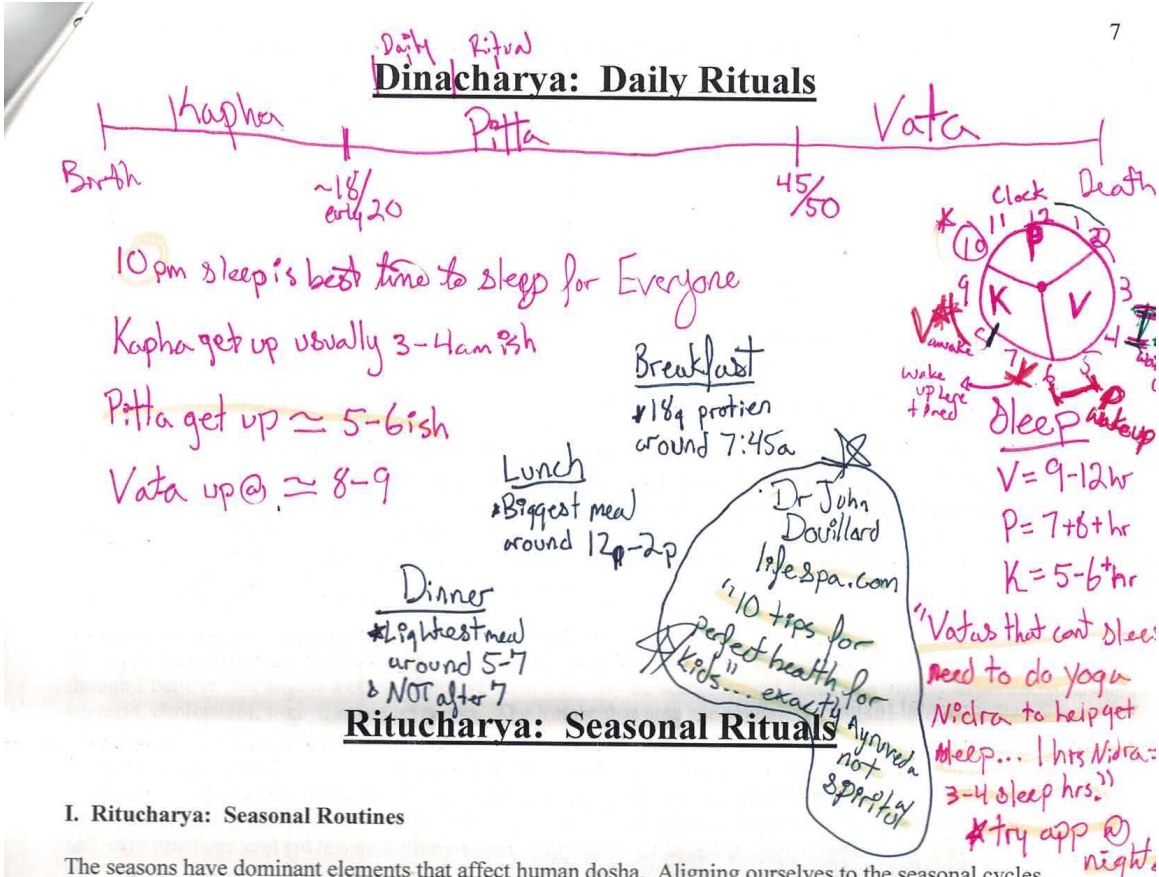 7
Daily Ritual
Dinacharya: Daily Rituals
Kapha Pitta Vata
Birth
~18/
early 20
45/
50
Death
Clock
10 11 12 1 2
9 P 3
K V
8 4
7 6 5
V awake
wake
up here
tired
K
P
wakeup
10pm sleep is best time to sleep for Everyone
Kapha get up usually 3-4am ish
Pitta get up ≃ 5-6ish
Vata up@ ≃ 8-9
Breakfast
*18g protien
around 7:45a
Lunch
*Biggest meal
around 12p-2p
Dinner
*Lightest meal
around 5-7
& NOT after 7
Dr John
Douillard
lifespa.com
"10 tips for
perfect health for
kids".... exactly
Ayurveda
not
spiritul
Sleep
V = 9-12hr
P = 7+8+hr
K = 5-6+hr
"Vatas that cant slee
need to do yoga
Nidra to help get
sleep... 1 hrs Nidra=
3-4 sleep hrs."
*try app @
night
Ritucharya: Seasonal Rituals
I. Ritucharya: Seasonal Routines
The seasons have dominant elements that affect human dosha. Aligning ourselves to the seasonal cycles